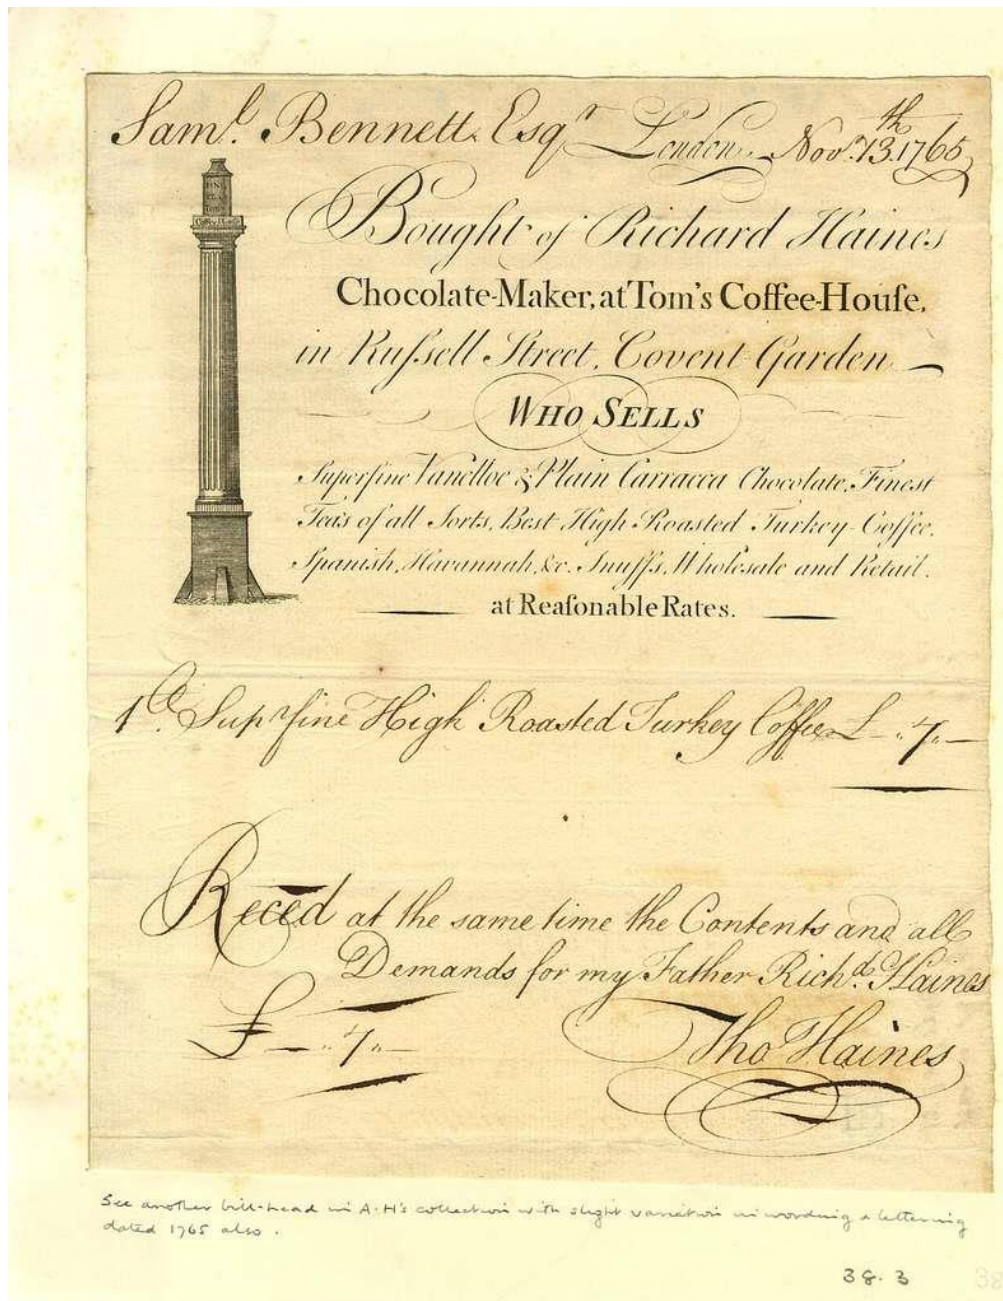 Sam.l Bennett Esq.r London Nov.r 13.th 1765
Coffee House
Bought of Richard Haines
Chocolate-Maker, at Tom's Coffee-Houſe,
in Ruſsell Street, Covent Garden
WHO SELLS
Superfine Vanelloe & Plain Carracca Chocolate, Finest
Teas of all Sorts, Best High Roasted Turkey-Coffee,
Spanish, Havannah, &c. Snuffs, Wholesale and Retail.
at Reaſonable Rates.
1 Sup.rfine High Roasted Turkey Coffee £ - „ 7 „ -
Recēd at the same time the Contents and all
Demands for my Father Rich.d Haines
£ - „ 7 „ -
Tho Haines
See another bill-head in A.H's collection with slight variation in wording & lettering
dated 1765 also.
38.3
38